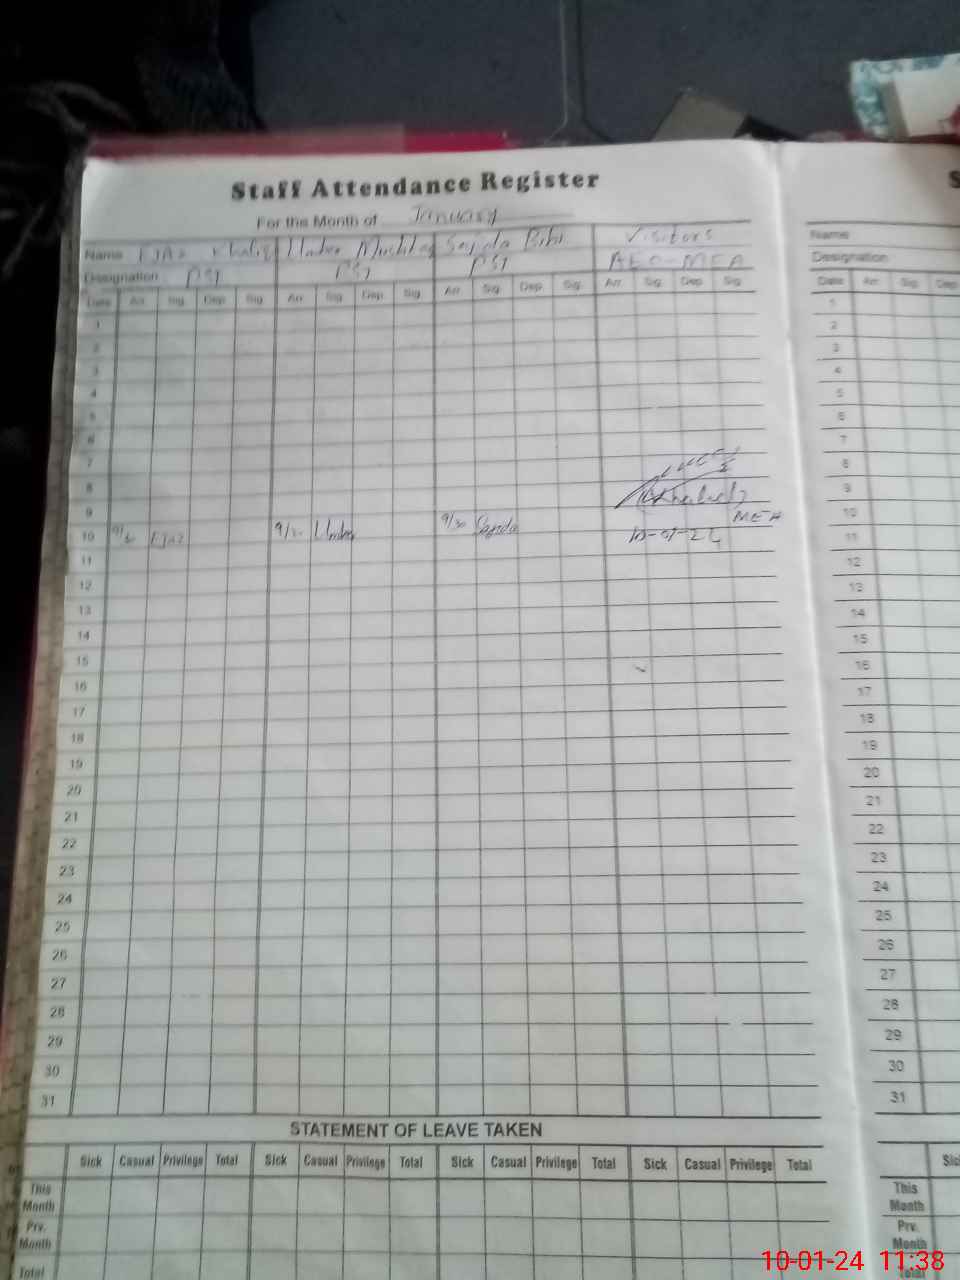 Staff Attendance Register
S
For the Month of January
Name Ejaz Khaliq Umber Mushtaq Sajida Bibi Visitors
Designation PST PST PST AEO-MEA
Date Arr. Sig. Dep. Sig. Arr. Sig. Dep. Sig. Arr. Sig. Dep. Sig. Arr. Sig. Dep. Sig.
1
2
3
4
5
6
7
8
9
MEA
10 9/30 Ejaz 9/30 Umber 9/30 Sajida 10-01-24
11
12
13
14
15
16
17
18
19
20
21
22
23
24
25
26
27
28
29
30
31
STATEMENT OF LEAVE TAKEN
Sick Casual Privilege Total Sick Casual Privilege Total Sick Casual Privilege Total Sick Casual Privilege Total
This Month
Prv. Month
Total
Name
Designation
Date Arr. Sig. Dep
1
2
3
4
5
6
7
8
9
10
11
12
13
14
15
16
17
18
19
20
21
22
23
24
25
26
27
28
29
30
31
Sic
This Month
Prv. Month
Total
10-01-24 11:38